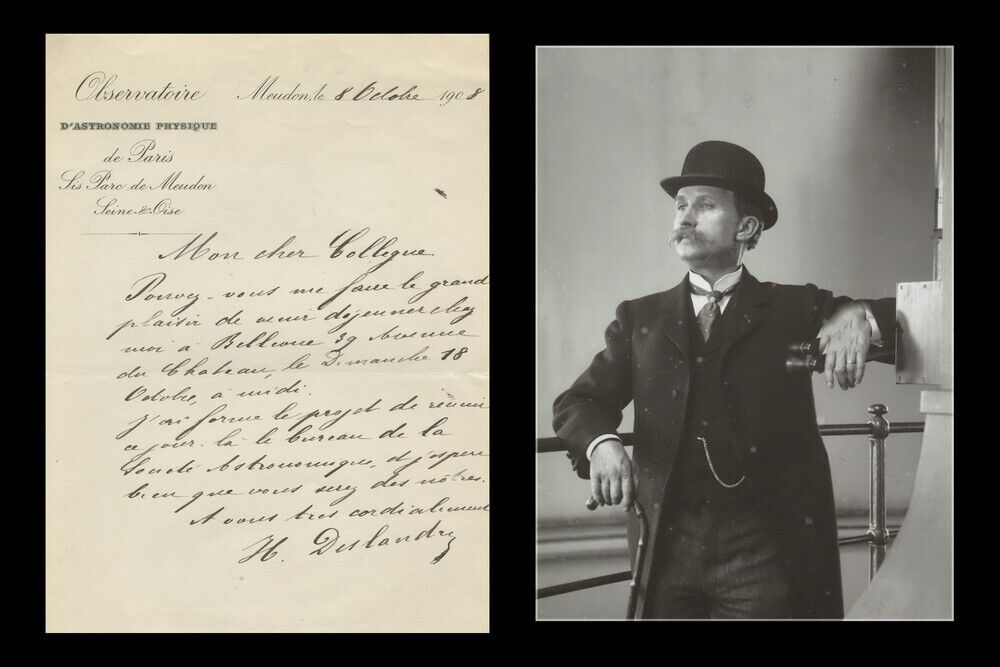 Observatoire
Meudon, le 8 Octobre 1908
D'ASTRONOMIE PHYSIQUE
de Paris
Sis Parc de Meudon
Seine-&-Oise
Mon cher Collegue
Pouvez-vous me faire le grand
plaisir de venir dejeuner chez
moi à Bellevue 39 Avenue
du Chateau, le Dimanche 18
Octobre, à midi.
J'ai formé le projet de réunir
ce jour-là le bureau de la
Société Astronomique, et j'espere
bien que vous serez des nôtres.
A vous tres cordialement
H. Deslandres